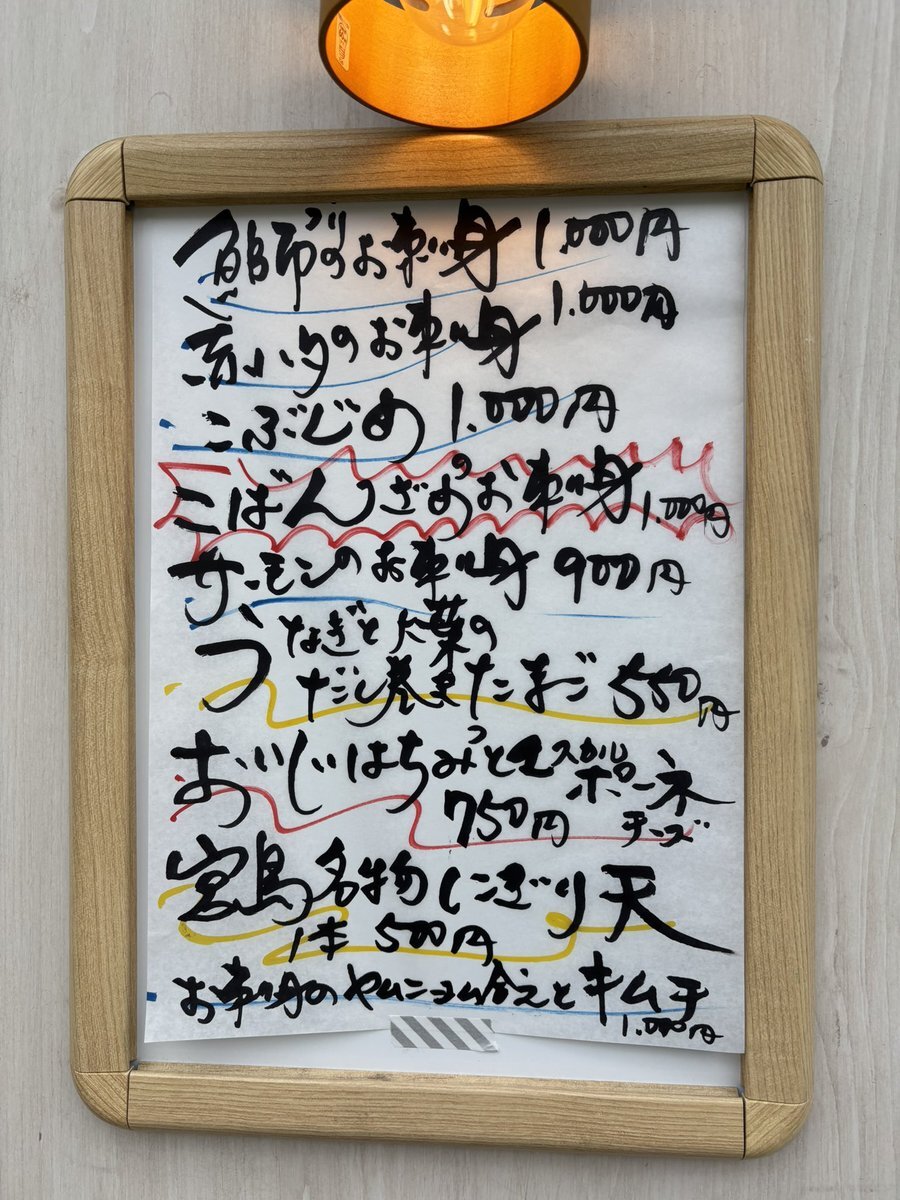 鰤のお刺身 1.000円
赤ハタのお刺身 1.000円
こぶじめ 1.000円
こばんざめのお刺身 1.000円
サーモンのお刺身 900円
うなぎと大葉の
だし巻きたまご 550円
はちみつとマスカルポーネ
750円 チーズ
宮島名物にぎり天
1本 500円
お刺身のヤムニョム合えとキムチ
1.000円